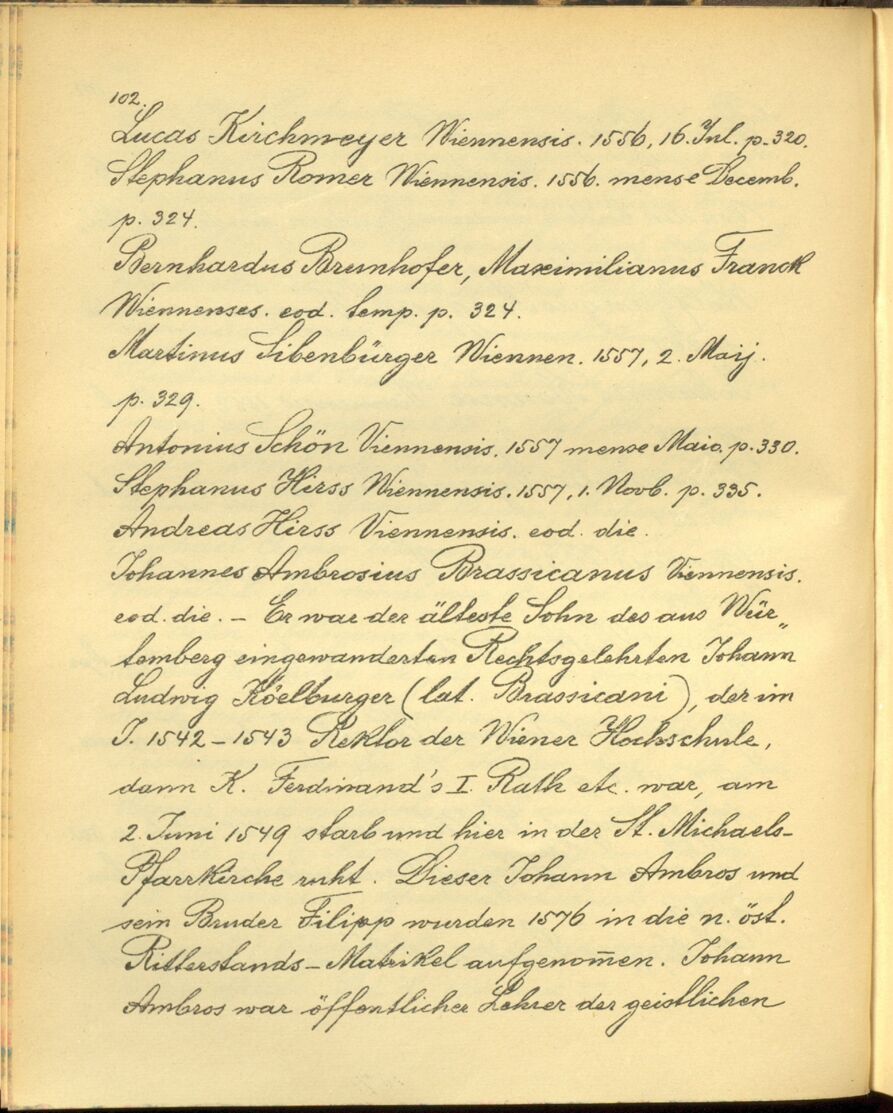 102.
Lucas Kirchmeyer Wiennensis. 1556, 16. Jul. p. 320.
Stephanus Romer Wiennensis. 1556. mense Decemb.
p. 324.
Bernhardus Brunhofer, Maximilianus Franck
Wiennenses. eod. temp. p. 324.
Martinus Sibenbürger Wiennen. 1557, 2. Maij.
p. 329.
Antonius Schön Viennensis. 1557 mense Maio. p. 330.
Stephanus Hirss Wiennensis. 1557, 1. Novb. p. 335.
Andreas Hirss Viennensis. eod. die.
Johannes Ambrosius Brassicanus Viennensis.
eod. die. – Er war der älteste Sohn des aus Wür„
temberg eingewanderten Rechtsgelehrten Johann
Ludwig Köelburger (lat. Brassicani), der im
J. 1542–1543 Rektor der Wiener Hochschule,
dann K. Ferdinand's I. Rath etc. war, am
2. Juni 1549 starb und hier in der St. Michaels-
Pfarrkirche ruht. Dieser Johann Ambros und
sein Bruder Filipp wurden 1576 in die n. öst.
Ritterstands-Matrikel aufgenom̄en. Johann
Ambros war öffentlicher Lehrer der geistlichen